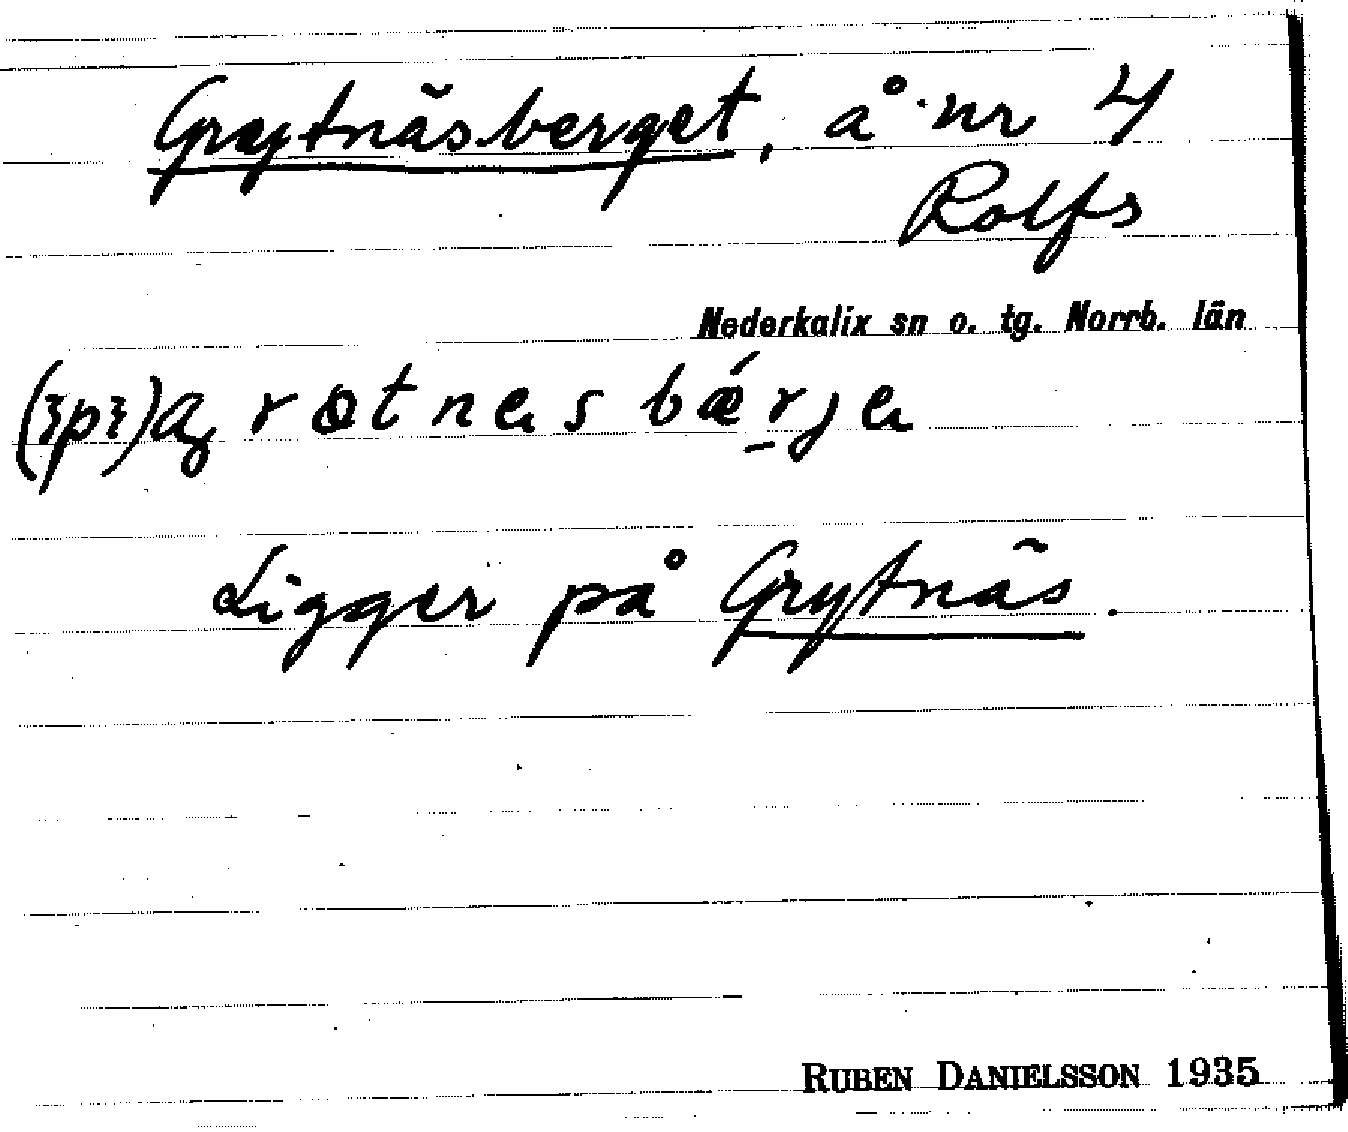 Grytnäsberget, å nr 4
Rolfs
Nederkalix sn o. tg. Norrb. län
Ligger på Grytnäs.
RUBEN DANIELSSON 1935